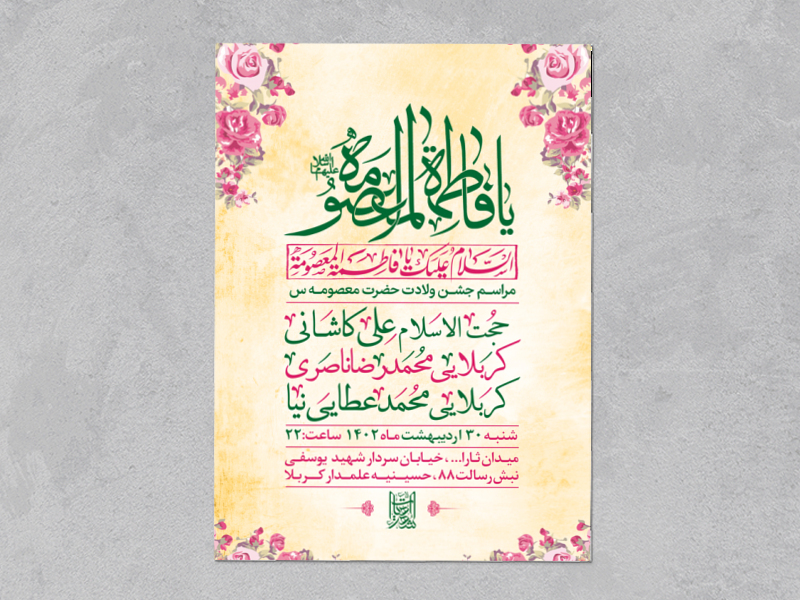 یا فاطمة المعصومه
علیها السلام
السلام علیک یا فاطمة المعصومة
مراسم جشن ولادت حضرت معصومه س
حجت الاسلام علی کاشانی
کربلایی محمدرضا ناصری
کربلایی محمد عطایی نیا
شنبه ۳۰ اردیبهشت ماه ۱۴۰۲ ساعت:۲۲
میدان ثارا...، خیابان سردار شهید یوسفی
نبش رسالت ۸۸، حسینیه علمدار کربلا